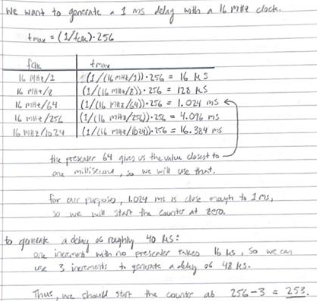 We want to generate a 1 ms delay with a 16 MHz clock.
tmax = (1/fclk)·256
fclk tmax
16 MHz/1 (1/(16 MHz/1))·256 = 16 µs
16 MHz/8 (1/(16 MHz/8))·256 = 128 µs
16 MHz/64 (1/(16 MHz/64))·256 = 1.024 ms
16 MHz/256 (1/(16 MHz/256))·256 = 4.096 ms
16 MHz/1024 (1/(16 MHz/1024))·256 = 16.384 ms
the prescaler 64 gives us the value closest to
one millisecond, so we will use that.
for our purposes, 1.024 ms is close enough to 1 ms,
so we will start the counter at zero.
to generate a delay of roughly 40 µs:
one increment with no prescaler takes 16 µs, so we can
use 3 increments to generate a delay of 48 µs.
Thus, we should start the counter at 256-3 = 253.